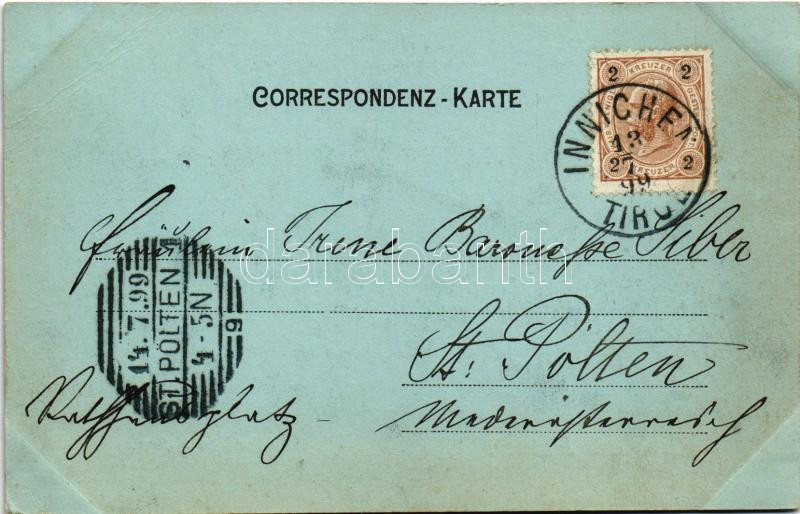 CORRESPONDENZ - KARTE
2 KREUZER 2
2 KREUZER 2
INNICHEN
13
7
99
TIROL
Fräulein Irene Baronesse Siber
darabanth
St. Pölten
Rathhausplatz -
Niederösterreich
ST. PÖLTEN 1
14.7.99
4-5N
9